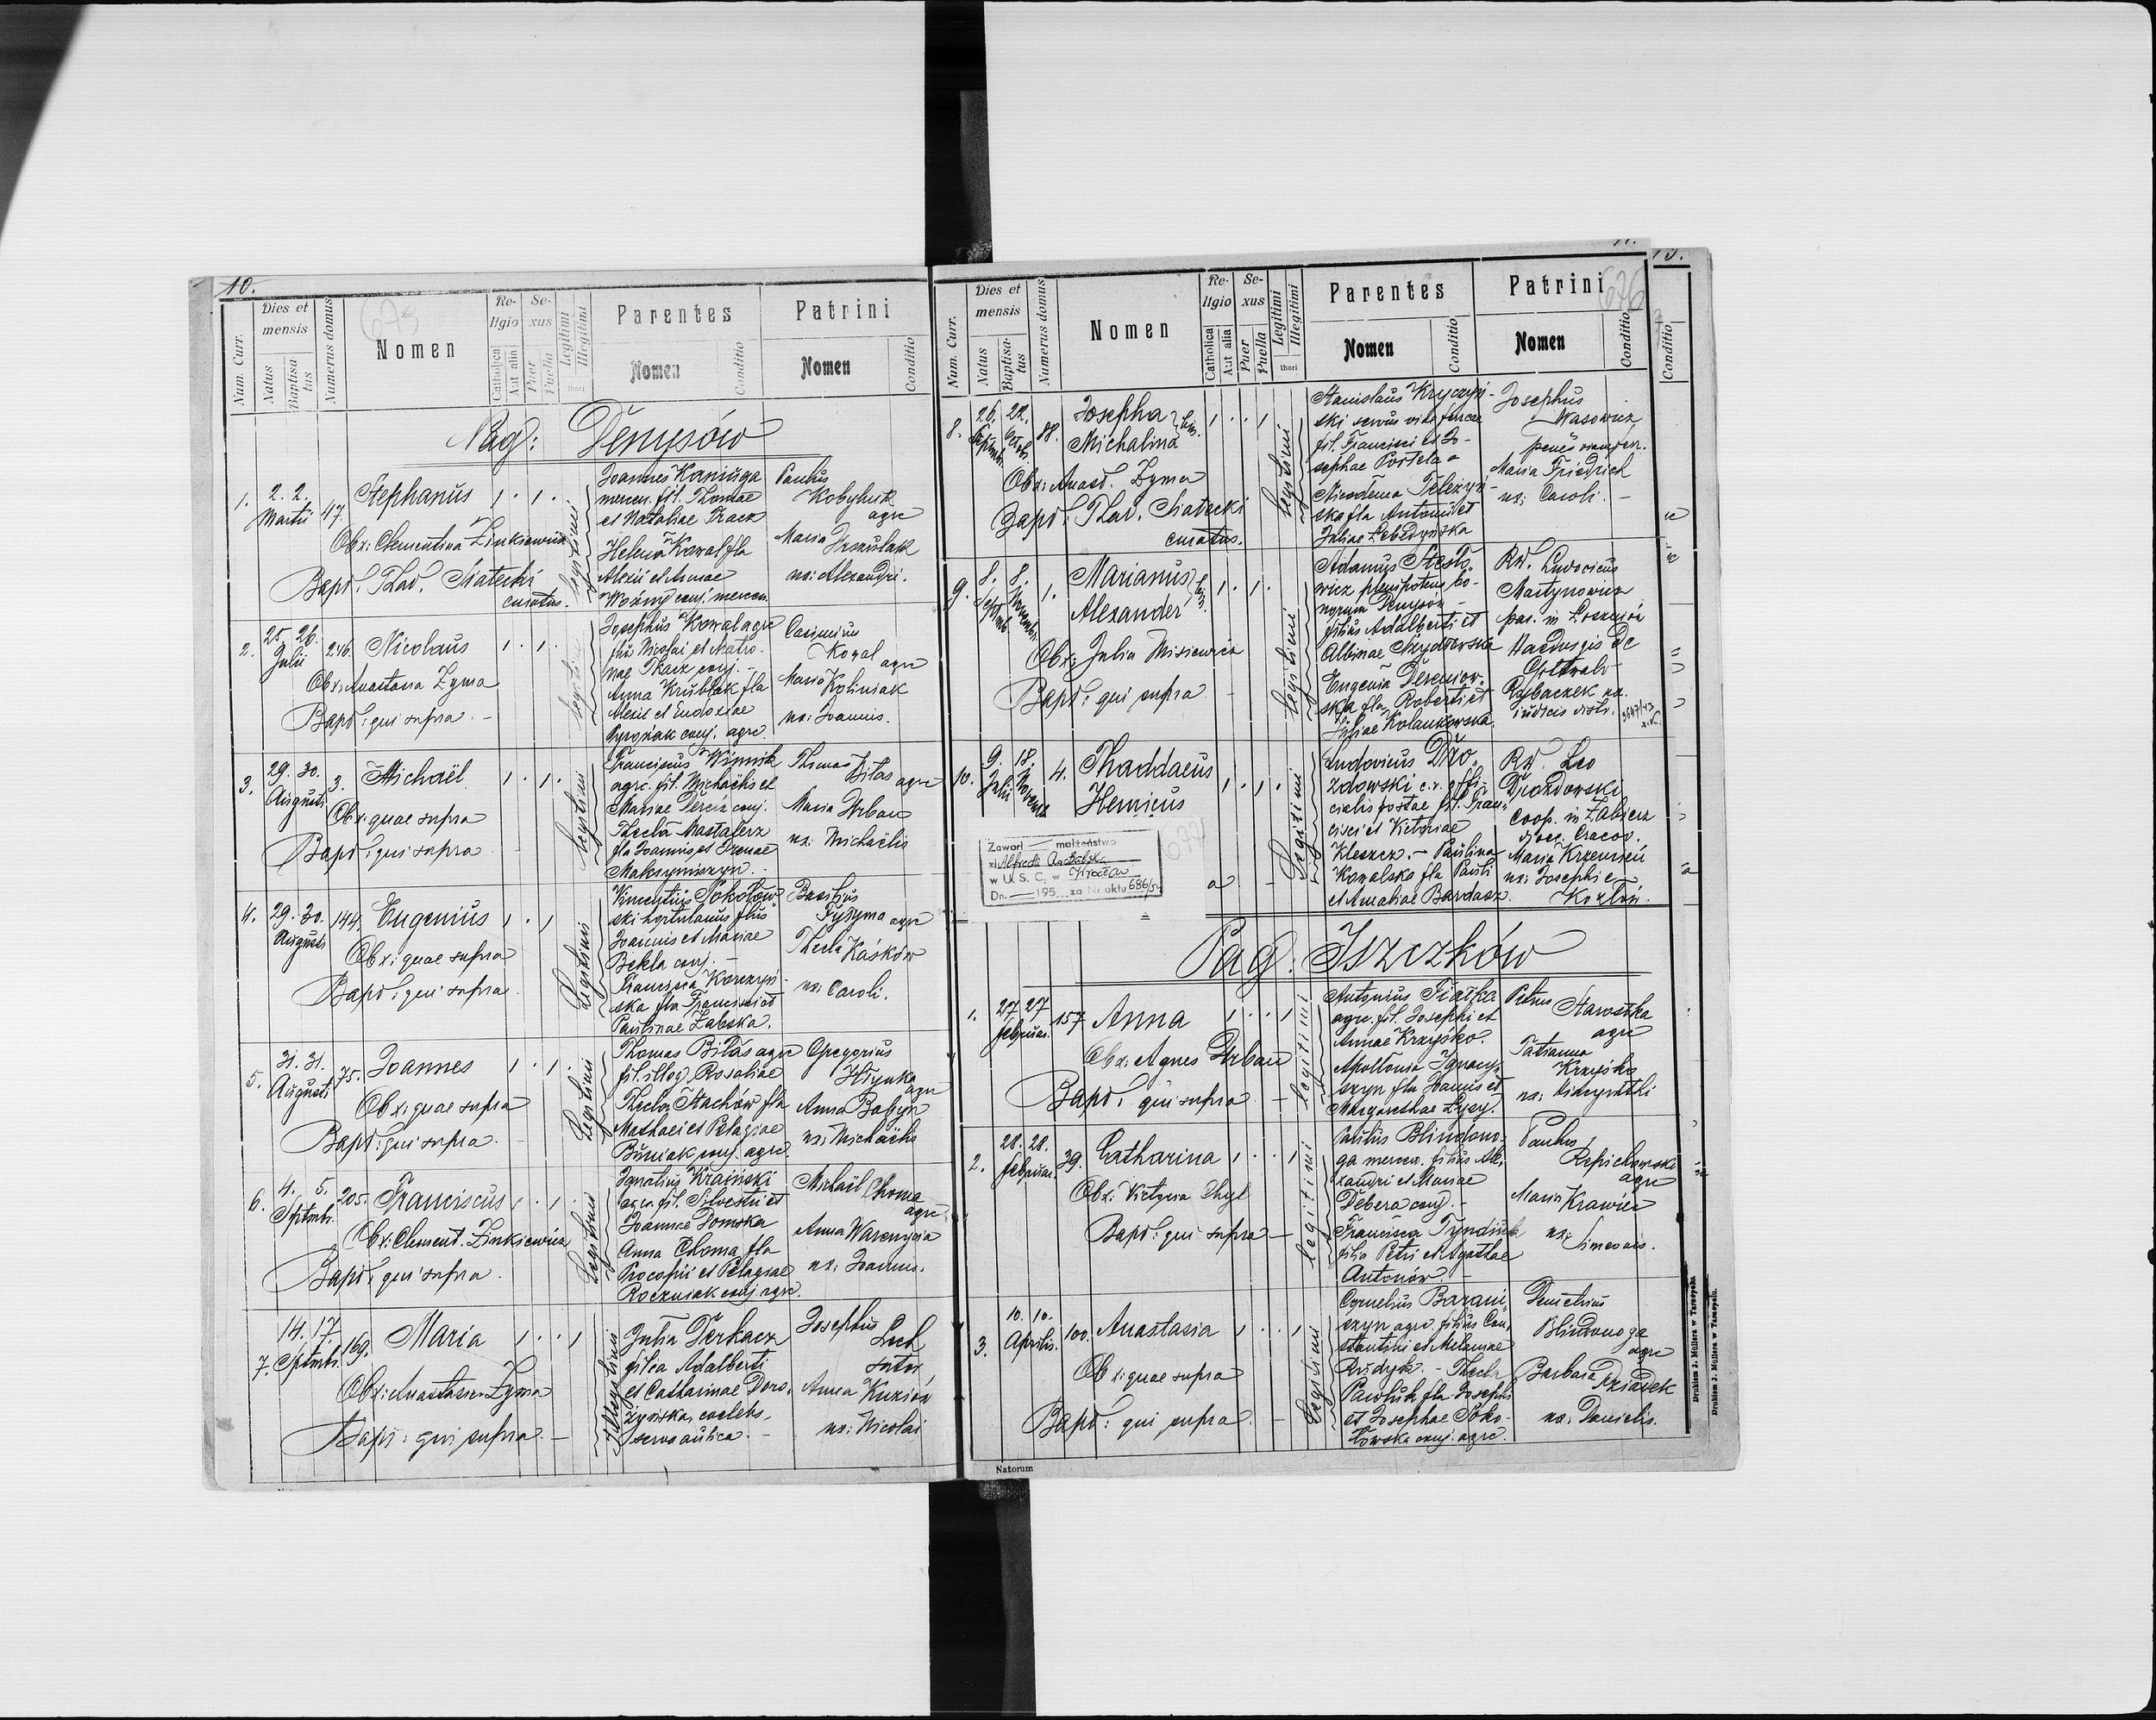 10.
Num. Curr.
Dies et mensis
Natus
Baptisatus
Numerus domus
Nomen
Religio
Catholica
Aut alia
Sexus
Puer
Puella
Legitimi
Illegitimi
thori
Parentes
Nomen
Conditio
Patrini
Nomen
Conditio
675
Pag: Denysów
1.
2. 2.
Martii
47
Stephanus
1 . 1 .
Obx: Clementina Zinkiewicz
Bapt. Thad. Siatecki
curatus.
legitimi
Joannes Kaniuga
mercen. fil. Thomae
et Nataliae Tracz
Helena Kowal fla
Alexii et Annae
Woźny conj. mercen.
Paulus
Kobyluk
agrc
Maria Urszulak
ux: Alexandri.
2.
25. 26.
Julii
246.
Nicolaus
1 . 1 .
Obx: Anastasia Zyma
Bapt: qui supra. -
legitimi
Josephus Kowal agrc
flii Nicolai et Matro-
nae Tkacz conj. -
Anna Krublak fla
Alexii et Eudoxiae
conj. agrc.
Casimirus
Kowal agrc
Maria Koliniak
ux: Joannis.
3.
29. 30.
Augusti
3.
Michaël
1 . 1 .
Obx: quae supra
Bapt: qui supra
legitimi
Franciscus Winnik
agrc. fil. Michaëlis et
Mariae Dercin conj.
Thecla Mastalerz
fla Joannis et Irenae
Maksymiszyn. -
Thomas Bilas agrc
Maria Urban
ux: Michaëlis
4.
29. 30.
Augusti
144.
Eugenius
1 . 1
Obx: quae supra
Bapt: qui supra.
Legitimi
Vincentius Sokołow-
ski filius
Joannis et Mariae
Bekla conj. -
Francisca Korczyń-
ska fla Francisci et
Paulinae Zabska.
Basilius
Tyzyma agrc
Thecla Kaśków
ux: Caroli.
5.
31. 31.
Augusti
75.
Joannes
1 . 1 .
Obx: quae supra
Bapt: qui supra.
Legitimi
Thomas Bilas agrc
fil. illeg. Rosaliae
Thecla Stachów fla
Mathaei et Pelagiae
Buniak conj. agrc.
Gregorius
Hłynka
agrc
Anna Babyn
ux: Michaëlis
6.
4. 5.
Septmb.
205.
Franciscus
1 . 1 .
Obx: Clement. Zinkiewicz
Bapt. qui supra.
Legitimi
Ignatius Kraiński
agrc. fil. Silvestri et
Joannae Domska
Anna Choma fla
Procopii et Pelagiae
Roczniak conj. agrc.
Michaël Choma
agrc.
Anna Warenycia
ux: Joannis.
7.
14. 17.
Septmb.
169.
Maria
1 . . 1
Obx: Anastasia Zyma
Bapt: qui supra. -
Illegitimi
Julia Derkacz
filia Adalberti
et Catharinae Doro-
żyńska, caelebs,
serva aulica. -
Josephus
Lech
sutor
Anna Kuzioń
ux: Nicolai
11.
Num. Curr.
Dies et mensis
Natus
Baptisatus
Numerus domus
Nomen
Religio
Catholica
Aut alia
Sexus
Puer
Puella
Legitimi
Illegitimi
thori
Parentes
Nomen
Conditio
Patrini
Nomen
Conditio
676
13.
Conditio
8.
26. 22.
Septmb. Octob.
88.
Josepha
Michalina
bin.
1 . . 1
Obx: Anast. Zyma
Bapt. Thad. Siatecki
curatus.
legitimi
Stanislaus Kryczyń-
ski servus viae ferreae
fil. Francisci et Jo-
sephae Portela
Nicodema Teleżyń-
ska fla Antonii et
Juliae Lebedyńska
Josephus
Wasowicz
penes viam ferr.
Maria Friedrich
ux: Caroli. -
9.
8. 8.
Septmb. Novembr.
1.
Marianus
Alexander
bin.
1 . 1 .
Obx: Julia Misiewicz
Bapt: qui supra -
legitimi
Adamus Stesło-
wicz plenipotens bo-
norum Denysów -
filius Adalberti et
Albinae Szydłowska
Eugenia Dereniow-
ska fla Roberti et
Juliae Kolankowska.
Rd. Ludovicus
Martynowicz
par. in Łoszniów
Hadwigis de
Ottwald
Rybaczek ux.
iudicis distr.
10.
9. 18.
Julii Novemb.
4.
Thaddaeus
Henricus
1 . 1 .
Legitimi
Ludovicus Dro-
zdowski c.r. offi-
cialis postae fil. Fran-
cisci et Victoriae
Kleszcz. - Paulina
Kowalska fla Pauli
et Amaliae Bardasz.
Rd. Leo
Drozdowski
Coop. in Zabierz
dioec. Cracov.
Maria Krzewicki
ux: Josephi e
Kozłów.
Zawarł małżeństwo
w U. S. C. w Wrocław
Dn. 195 za Nr aktu 686/54
677
Pag: Iszczków
1.
27 27
februar.
157
Anna
1 . . 1
Obx: Agnes Urban
Bapt. qui supra -
legitimi
Antonius Fiałka
agrc. fil. Josephi et
Annae Krzyśko.
Apollonia Ignacy-
szyn fla Joannis et
Margarethae Łysy.
Petrus Starostka
agrc
Tatianna
Krzyśko
ux:
2.
28. 28.
februar.
39.
Catharina
1 . . 1
Obx: Victoria Chyl
Bapt: qui supra -
legitimi
Paulus Blindono-
ga mercen. filius Ale-
xandri et Mariae
Debera conj. -
Francisca Tyndiuk
filia Petri et Agathae
Antonów. -
Paulus
Repichowski
agrc
Maria Krawiec
ux: Simeonis.
3.
10. 10.
Aprilis.
100.
Anastasia
1 . . 1
Obx: quae supra
Bapt: qui supra. -
Legitimi
Cornelius Barani-
szyn agrc. filius Con-
stantini et Melaniae
Rudyk. - Thecla
Pawluk fla Josephi
et Josephae Soko-
łowska conj. agrc.
Demetrius
Blindonoga
agrc
Barbara Dziadek
ux: Danielis.
Natorum
Drukiem J. Müllera w Tarnopolu.
Drukiem J. Müllera w Tarnopolu.